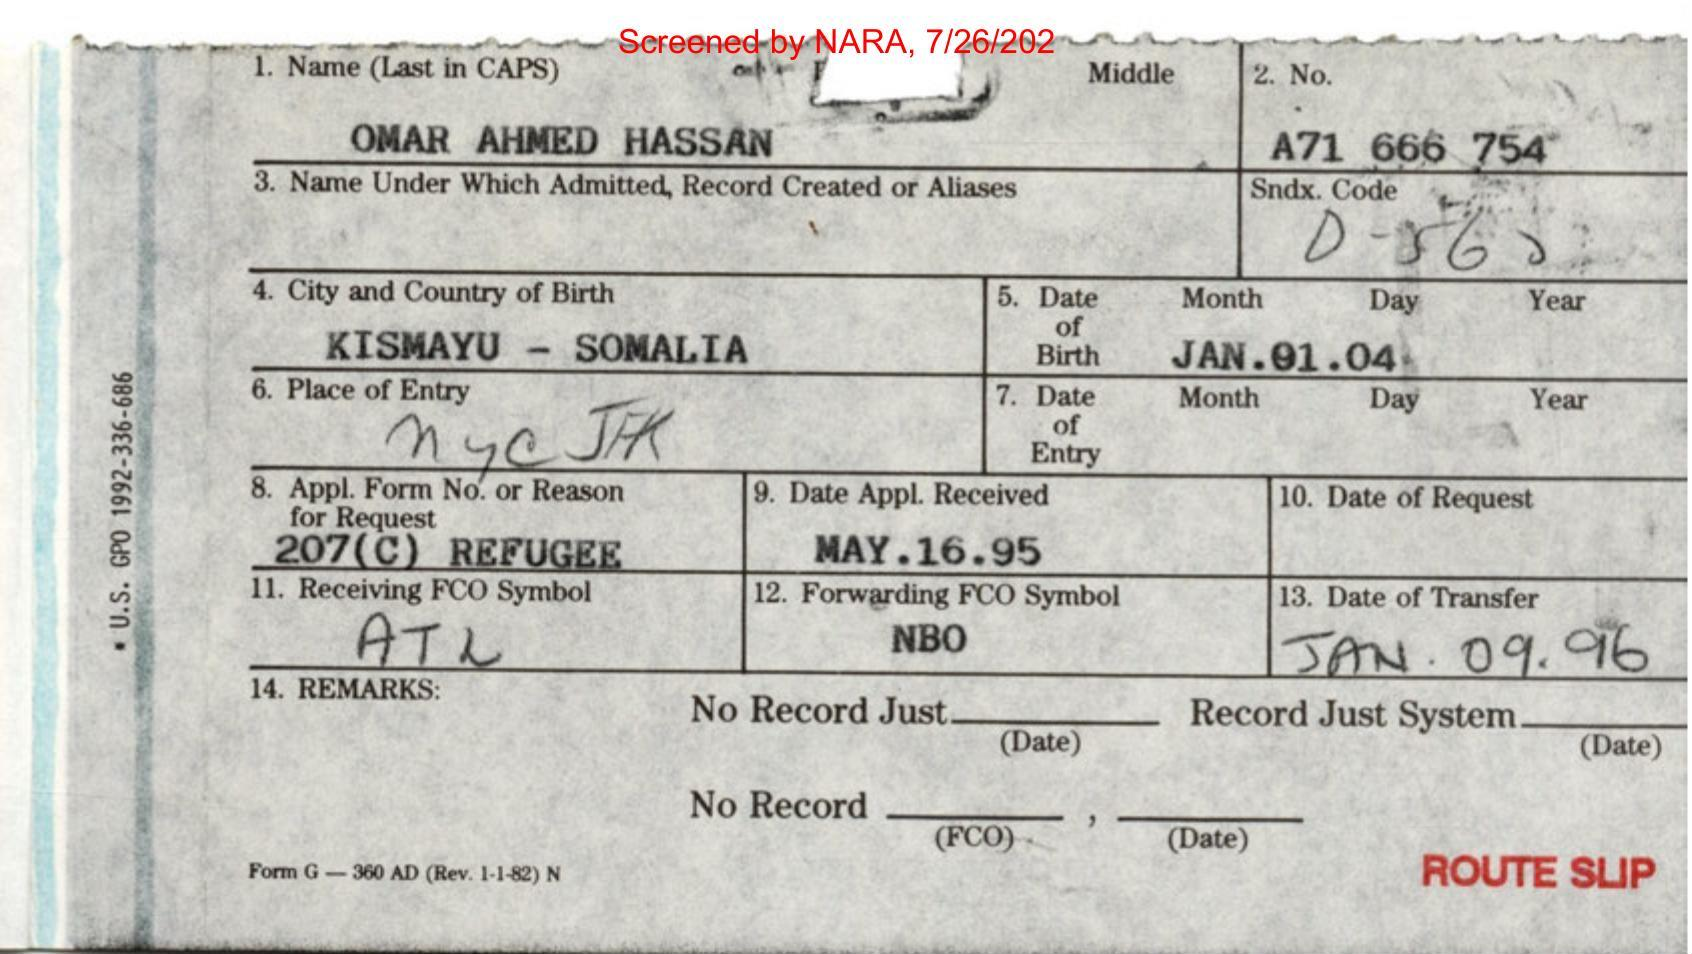 Screened by NARA, 7/26/202
1. Name (Last in CAPS) Middle
OMAR AHMED HASSAN
2. No.
A71 666 754
3. Name Under Which Admitted, Record Created or Aliases
Sndx. Code
4. City and Country of Birth
KISMAYU - SOMALIA
5. Date of Birth Month Day Year
JAN.01.04
6. Place of Entry
NYC JFK
7. Date of Entry Month Day Year
8. Appl. Form No. or Reason
for Request
207(C) REFUGEE
9. Date Appl. Received
MAY.16.95
10. Date of Request
11. Receiving FCO Symbol
ATL
12. Forwarding FCO Symbol
NBO
13. Date of Transfer
JAN. 09.96
14. REMARKS:
No Record Just Record Just System
(Date) (Date)
No Record ,
(FCO) (Date)
Form G — 360 AD (Rev. 1-1-82) N
ROUTE SLIP
* U.S. GPO 1992-336-686